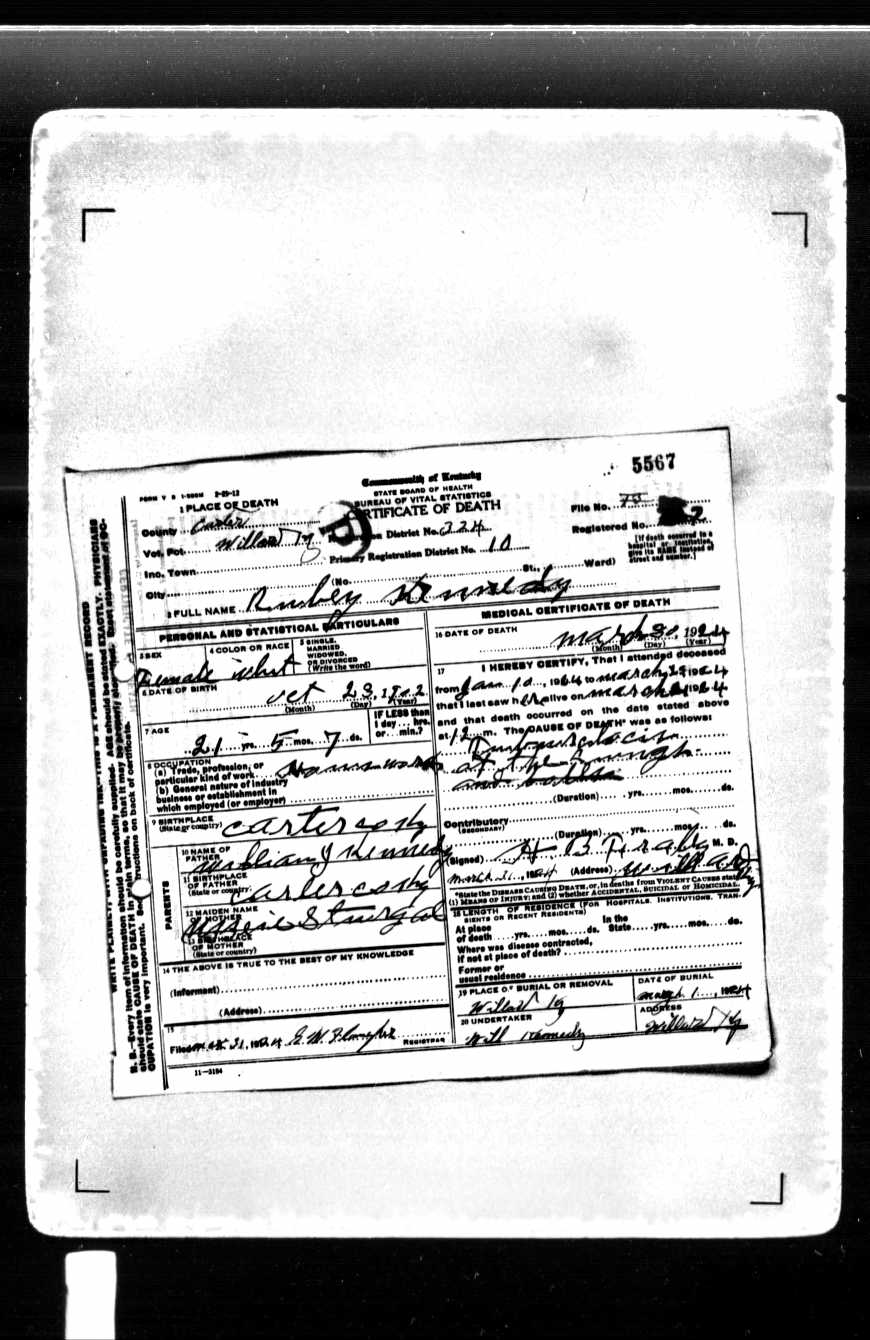 5567
Commonwealth of Kentucky
STATE BOARD OF HEALTH
BUREAU OF VITAL STATISTICS
CERTIFICATE OF DEATH
FORM V S 1-500M 2-25-12
1 PLACE OF DEATH
County Carter
Vot. Pct. Willard Ky
Inc. Town
City
Registration District No. 324
Primary Registration District No. 10
File No. 75
Registered No.
[If death occurred in a hospital or institution, give its NAME instead of street and number.]
(No. St., Ward)
2 FULL NAME Rubey Kennedy
PERSONAL AND STATISTICAL PARTICULARS
3 SEX
Female
4 COLOR OR RACE
whit
5 SINGLE, MARRIED WIDOWED, OR DIVORCED (Write the word)
6 DATE OF BIRTH
oct 23, 1902
(Month) (Day) (Year)
7 AGE
21 yrs. 5 mos. 7 ds.
IF LESS than 1 day ... hrs. or ... min.?
8 OCCUPATION
(a) Trade, profession, or particular kind of work
(b) General nature of industry business or establishment in which employed (or employer)
9 BIRTHPLACE
(State or country) carter co ky
PARENTS
10 NAME OF FATHER
William J Kennedy
11 BIRTHPLACE OF FATHER
(State or country) carter co ky
12 MAIDEN NAME OF MOTHER
13 BIRTHPLACE OF MOTHER
(State or country)
14 THE ABOVE IS TRUE TO THE BEST OF MY KNOWLEDGE
(Informant)
(Address)
15
Filed Mch 31, 1924
REGISTRAR
11-3184
MEDICAL CERTIFICATE OF DEATH
16 DATE OF DEATH
march 30, 1924
(Month) (Day) (Year)
17 I HEREBY CERTIFY, That I attended deceased
from Jan 10, 1924 to march 29 1924
that I last saw her alive on march 1924
and that death occurred on the date stated above
at 12 m. The CAUSE OF DEATH* was as follows:
of the Lungs
and
(Duration) yrs. mos. ds.
Contributory
(SECONDARY)
(Duration) yrs. mos. ds.
(Signed) H B M. D.
March 31, 1924 (Address) Willard Ky
*State the DISEASE CAUSING DEATH, or, in deaths from VIOLENT CAUSES state
(1) MEANS OF INJURY; and (2) whether ACCIDENTAL, SUICIDAL or HOMICIDAL.
18 LENGTH OF RESIDENCE (FOR HOSPITALS, INSTITUTIONS, TRANSIENTS OR RECENT RESIDENTS)
At place of death yrs. mos. ds. In the State yrs. mos. ds.
Where was disease contracted, if not at place of death?
Former or usual residence
19 PLACE OF BURIAL OR REMOVAL
Willard Ky
DATE OF BURIAL
march 1, 1924
20 UNDERTAKER
Will Kennedy
ADDRESS
Willard Ky
WRITE PLAINLY WITH UNFADING INK—THIS IS A PERMANENT RECORD
N. B.—Every item of information should be carefully supplied. AGE should be stated EXACTLY. PHYSICIANS should state CAUSE OF DEATH in plain terms, so that it may be properly classified. Exact statement of OCCUPATION is very important. See instructions on back of certificate.